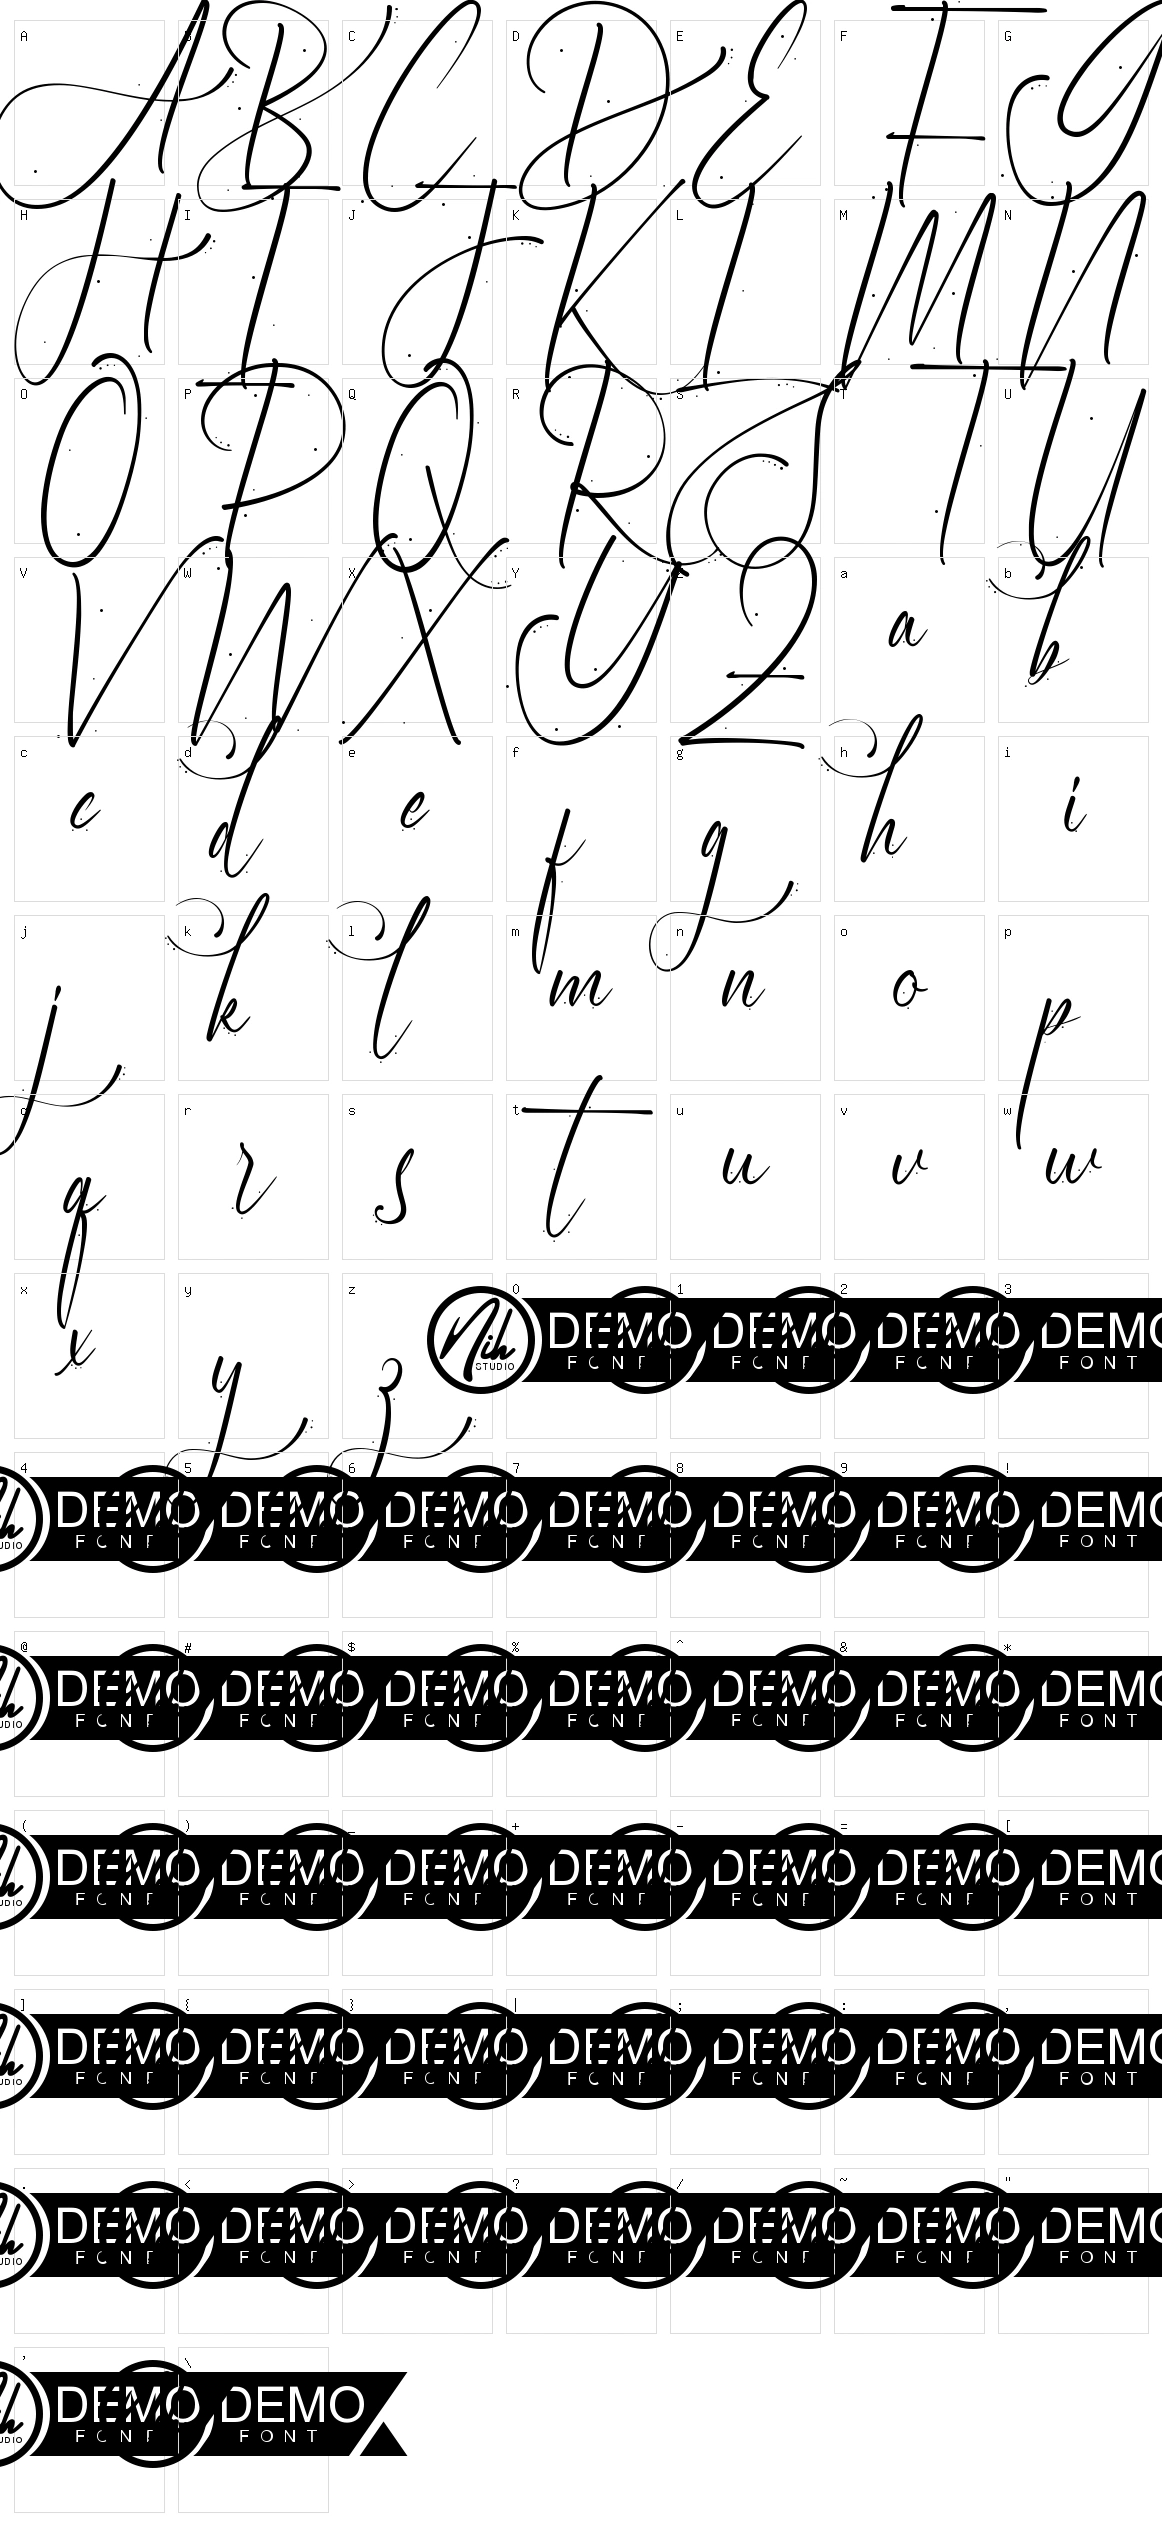 A B C D E F G
A B C D E F G
H I J K L M N
H I J K L M N
O P Q R S T U
O P Q R S T U
V W X Y Z a b
V W X Y Z a b
c d e f g h i
c d e f g h i
j k l m n o p
j k l m n o p
q r s t u v w
q r s t u v w
x y z 0 1 2 3
x y z Nih STUDIO DEMO FONT DEMO FONT DEMO FONT DEMO FONT
4 5 6 7 8 9 !
DEMO FONT DEMO FONT DEMO FONT DEMO FONT DEMO FONT DEMO FONT DEMO FONT
@ # $ % ^ & *
DEMO FONT DEMO FONT DEMO FONT DEMO FONT DEMO FONT DEMO FONT DEMO FONT
( ) _ + - = [
DEMO FONT DEMO FONT DEMO FONT DEMO FONT DEMO FONT DEMO FONT DEMO FONT
] { } | ; : ,
DEMO FONT DEMO FONT DEMO FONT DEMO FONT DEMO FONT DEMO FONT DEMO FONT
. < > ? / ~ "
DEMO FONT DEMO FONT DEMO FONT DEMO FONT DEMO FONT DEMO FONT DEMO FONT
' \
DEMO FONT DEMO FONT